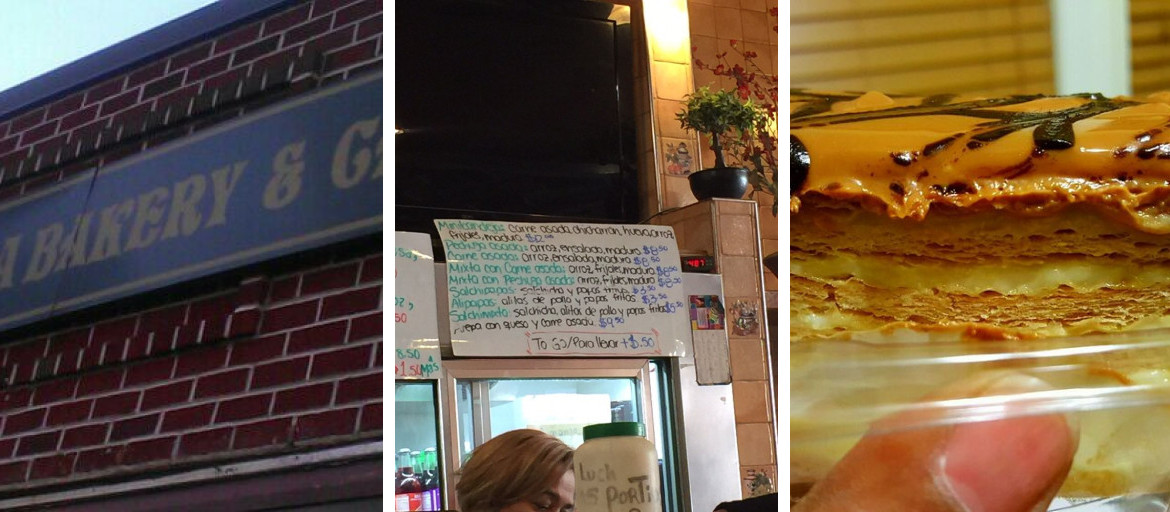 A BAKERY & G
Minibandeja: carne asada, chicharron, huevo, arroz
frijoles, maduro
Pechuga asada: arroz, ensalada, maduro $8.50
Carne asada: arroz, ensalada, maduro $8.50
Mixta con Carne asada: arroz, frijoles, maduro
Mixta con Pechuga asada: arroz, frijoles, maduro
Salchipapas: salchicha y papas fritas $3.50
Alipapas: alitas de pollo y papas fritas $3.50
Salchimixto: salchicha, alitas de pollo y papas fritas $5.50
con queso y carne asada $9.50
To Go/Para llevar + $.50
8.50
1.50 Mas
Luch
PorTi